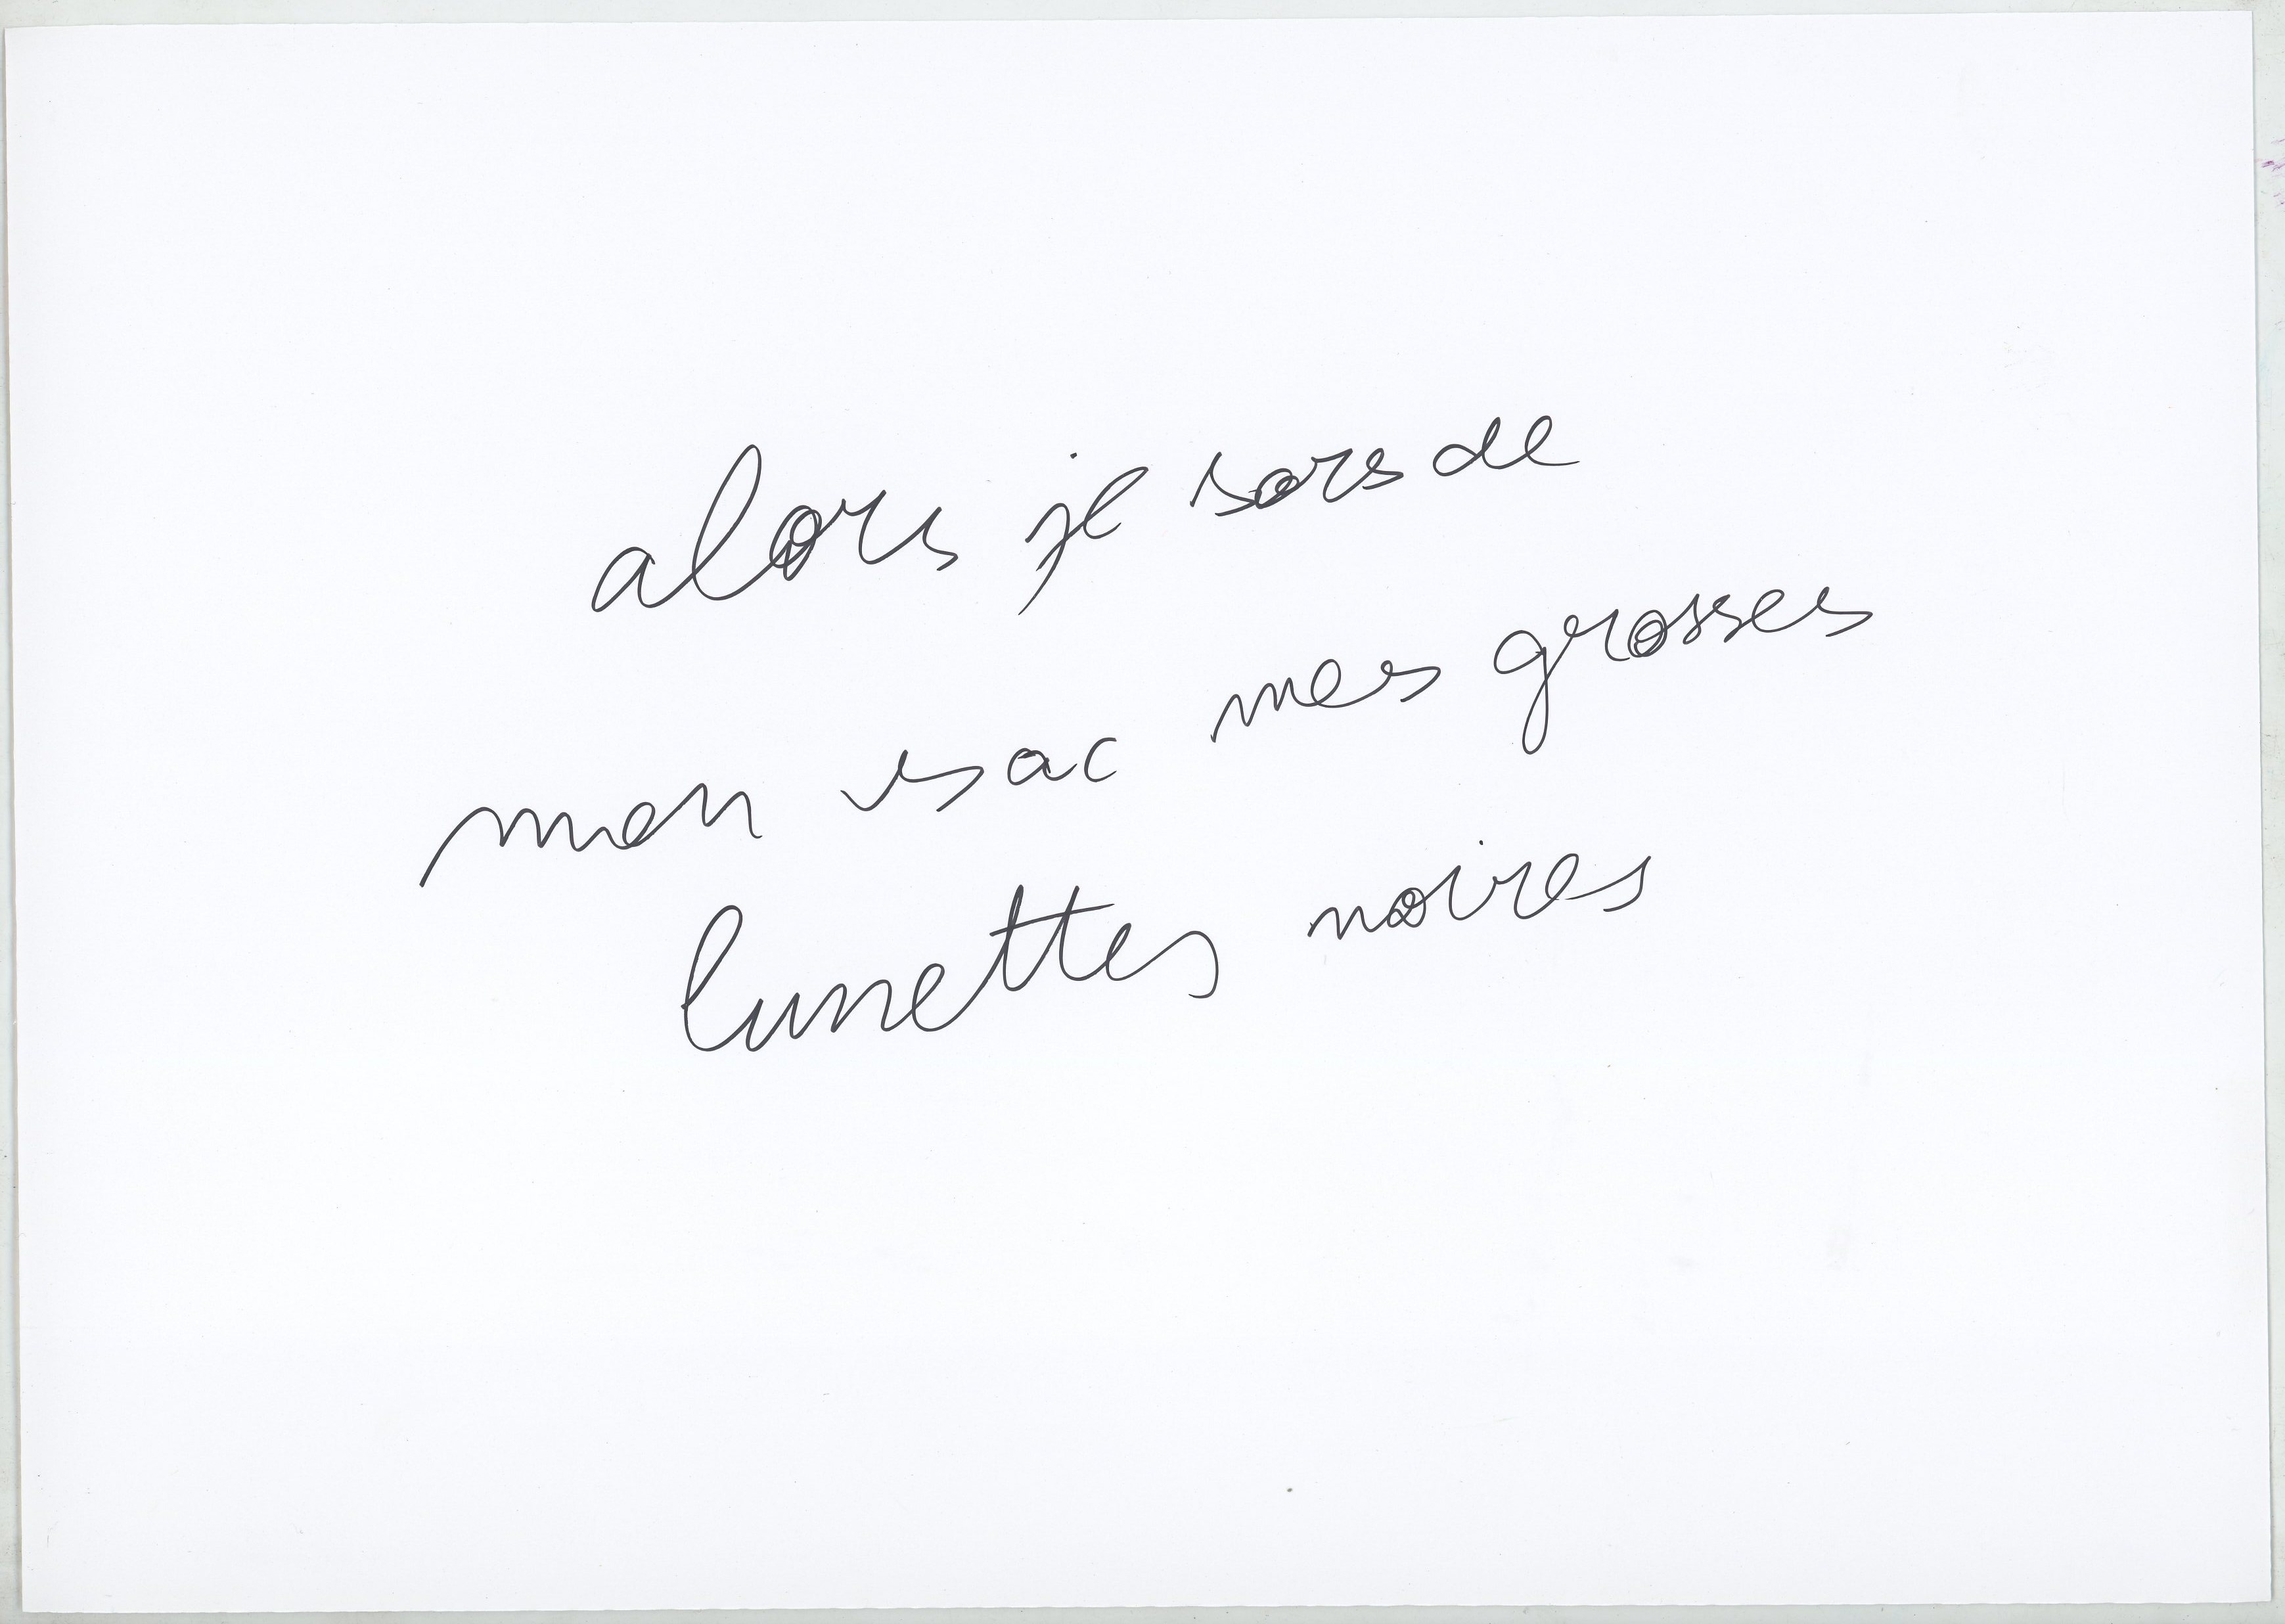 alors je sors de
mon sac mes grosses
lunettes noires